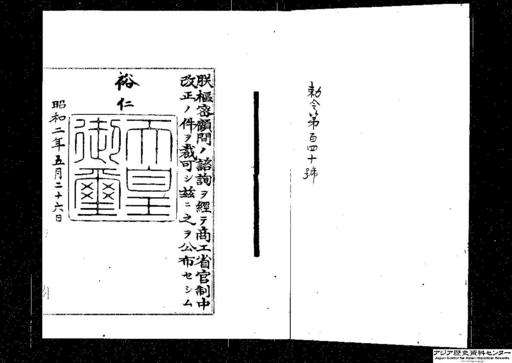 勅令第百四十號
朕樞密顧問ノ諮詢ヲ經テ商工省官制中
改正ノ件ヲ裁可シ茲ニ之ヲ公布セシム
裕仁
天皇
御璽
昭和二年五月二十六日
アジア歴史資料センター
Japan Center for Asian Historical Records